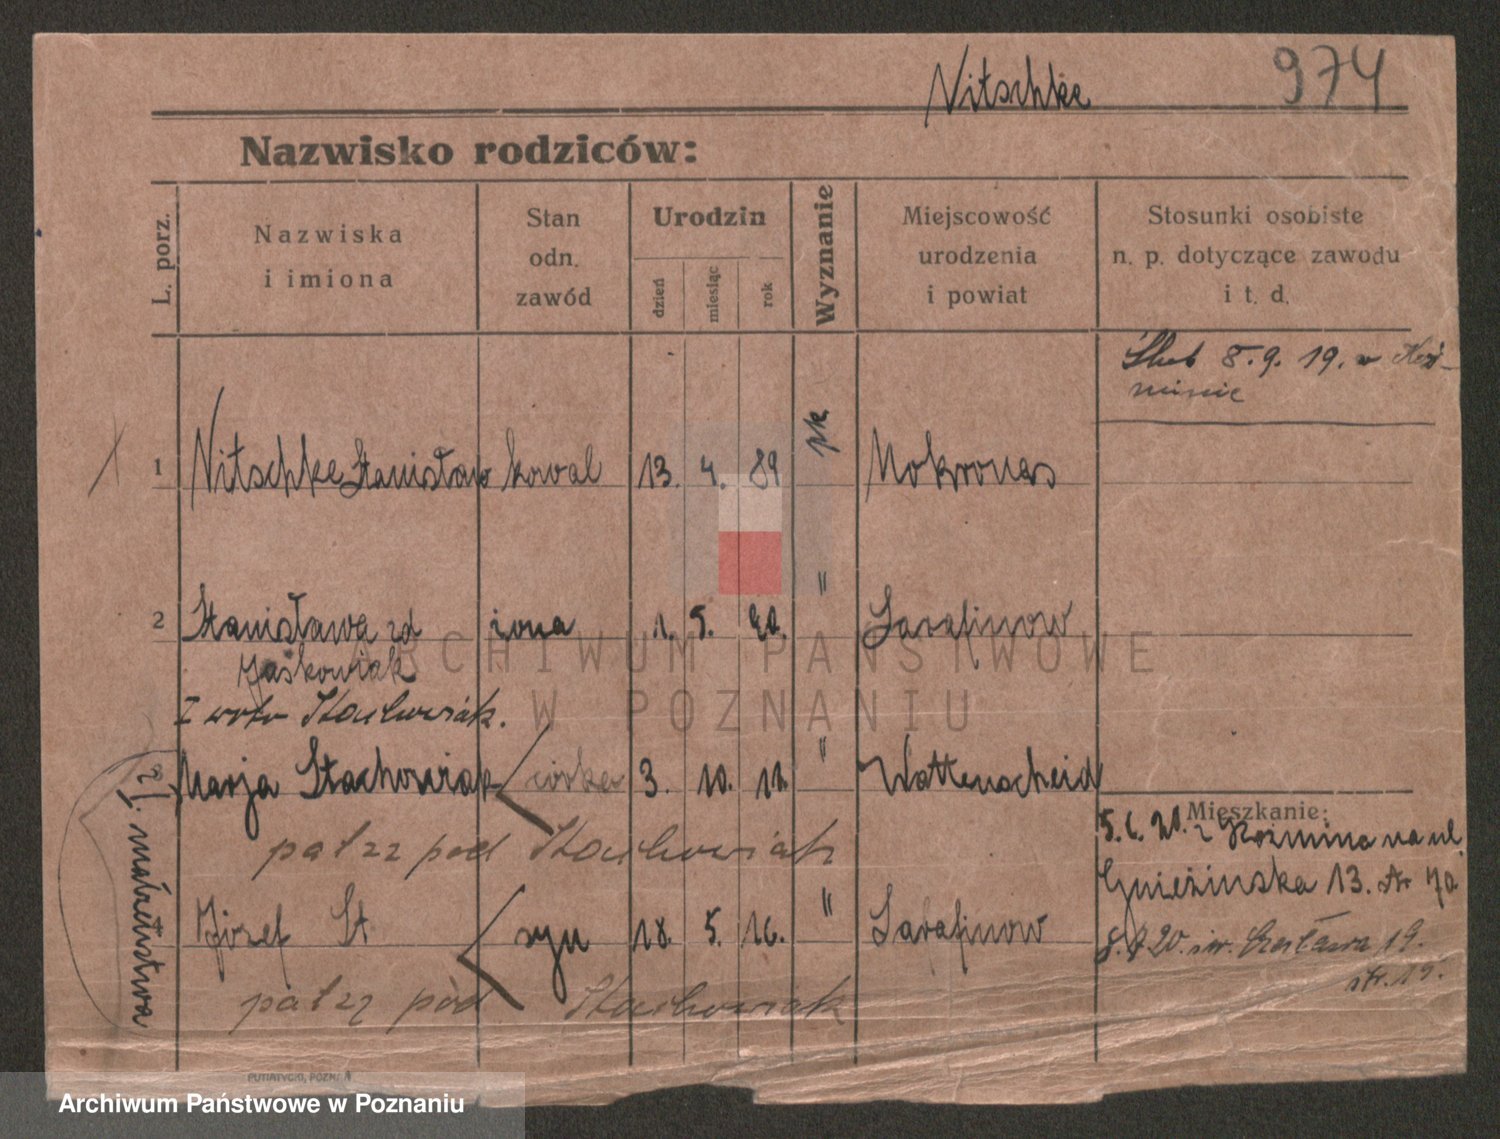 Nitschke 974
Nazwisko rodziców:
L. porz.
Nazwiska
i imiona
Stan
odn.
zawód
Urodzin
dzień
miesiąc
rok
Wyznanie
Miejscowość
urodzenia
i powiat
Stosunki osobiste
n. p. dotyczące zawodu
i t. d.
Ślub 8.9.19. w Koź-
minie
1 Nitschke Stanisław kowal 13. 4. 89 rk Mokronos
2 Stanisława zd żona 1. 5. 90. " Sarafinow
Jaśkowiak
I woto Stachowiak.
Marja Stachowiak córka 3. 10. 12. " Wattenscheid
Mieszkanie:
5.6.20. z Koźmina na ul.
patrz pod Stachowiak
Gnieźinska 13. tr 70
Józef St syn 18. 5. 16. " Sarafinow
8.9 20. św. Czesława 19.
str. 19.
patrz pod Stachowiak
z I. małżeństwa
PUTIATYCKI, POZNAŃ
ARCHIWUM PAŃSTWOWE
W POZNANIU
Archiwum Państwowe w Poznaniu